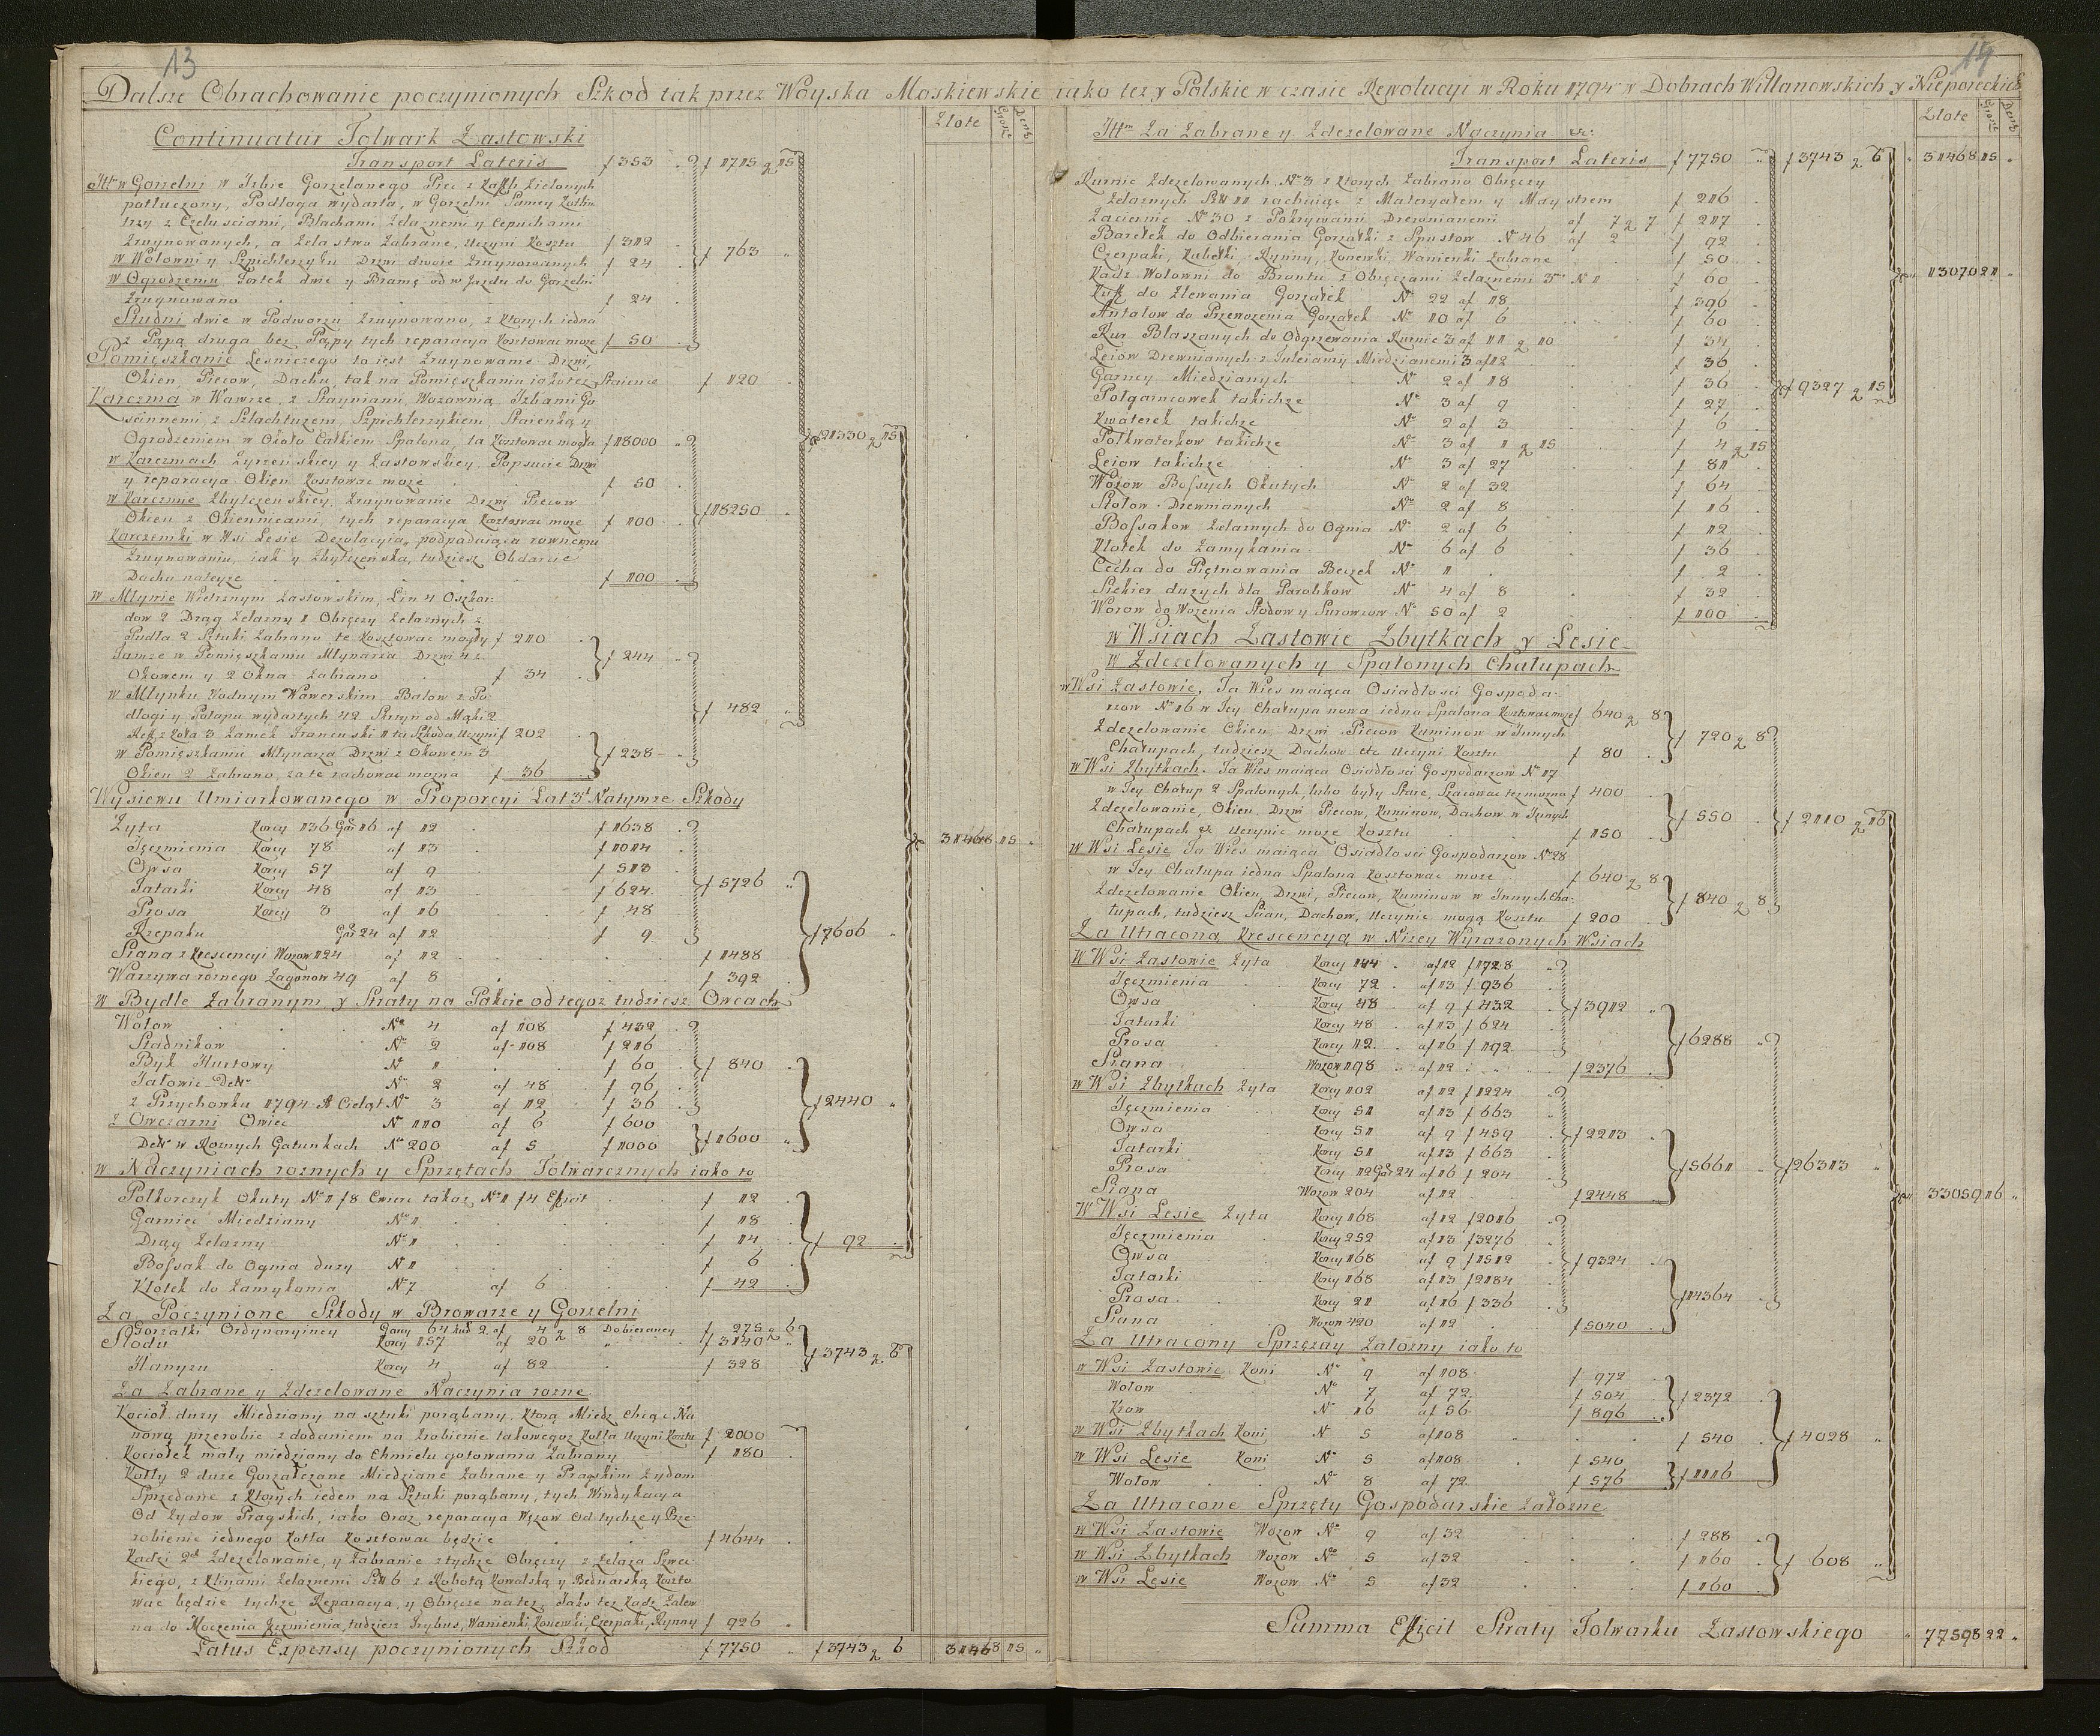 13
14
Dalsze Obrachowanie poczynionych Szkod tak przez Woyska Moskiewskie iako też y Polskie w czasie Rewolucyi w Roku 1794 w Dobrach Willanowskich y Nieporeckich
Złote Grosze Den:
Continuatur Folwark Zastowski
Transport Lateris f 353 f 1715 g 15
Itt: w Gorzelni w Izbie Gorzelanego Piec z Kafli Zielonych
potłuczony, Podłoga wydarta, w Gorzelni Samey Kotlin
trzy z Czelusciami, Blachami Żelaznemi y Cepuchami
Zruynowanych, a żelastwo Zabrane, Uczyni Kosztu f 312
w Wołowni y Szpichlerzyku Drzwi dwoie Zruynowanych f 24 f 763
w Ogrodzeniu Fortek dwie y Bramę od w Jazdu do Gorzelni
Zruynowano f 24
Studni dwie w Podworzu Zruynowano, z Ktorych iedna
z Papą druga bez Papy tych reparacya Kosztowac może f 50
Pomięszkanie Lesniczego to iest Zruynowanie Drzwi,
Okien, Piecow, Dachu, tak na Pomięszkaniu iako też Staience f 120
Karczma w Wawrze, z Stayniami, Wozownią Izbami Go
scinnemi, z Szlachtuzem, Szpichlerzykiem, Starenką y
Ogrodzeniem w Około Całkiem Spalona, ta Kosztowac mogła f 18000 f 21330 g 15
w Karczmach Zyrzenskiey y Zastowskiey, Popsucie Drzwi
y reparacya Okien Kosztowac może f 50
w Karczmie Zbytczenskiey, Zruynowanie Drzwi Piecow
Okien z Okiennicami, tych reparacya Kosztowac może f 100 f 18250
Karczemki w Wsi Lesie Dezolacyia, podpadaiąca rownemu
Zruynowaniu, iak y Zbytczenska, tudziesz Obdarcie
Dachu nateyże f 100
w Młynie Wietrznym Zastowskim, Lin 4 Oszkar-
dow 2 Drąg Żelazny 1 Obręczy Żelaznych z
Pudła 2 Sztuki Zabrano te Kosztowac mogły f 210
Tamże w Pomięszkaniu Młynarza Drzwi 4 z f 244
Okowem y 2 Okna Zabrano f 34
w Młynku Wodnym Wawerskim Balow z Po
dłogi y Pułapu wydartych 42 Skrzyn od Mąki 2 f 482
Ref. z Koła 3 Zamek Francuski 1 ta Szkoda Uczyni f 202
w Pomięszkaniu Młynarza Drzwi z Okowem 3 f 238
Okien 2 Zabrano, za te rachowac można f 36
Wysiewu Umiarkowanego w Proporcyi Lat 3ch Natymże Szkody
Żyta Korcy 136 Gar: 16 af 12 f 1638
Jęczmienia Korcy 78 af 13 f 1014 31468 15
Owsa Korcy 57 af 9 f 513
Tatarki Korcy 48 af 13 f 624 f 5726
Prosa Korcy 3 af 16 f 48
Rzepaku Gar: 24 af 12 f 9 f 7606
Siana z Krescencyi Wozow 124 af 12 f 1488
Warzywa roznego Zagonow 49 af 8 f 392
w Bydle Zabranym y Straty na Pakcie od tegoz tudziesz Owcach
Wołow No 4 af 108 f 432
Stadnikow No 2 af 108 f 216
Byk Hurtowy No 1 f 60 f 840
Jałowic Detto No 2 af 48 f 96
z Przychowku 1794 R Cieląt No 3 af 12 f 36 f 2440
z Owczarni Owiec No 110 af 6 f 600
Detto w Roznych Gatunkach No 200 af 5 f 1000 f 1600
w Naczyniach roznych y Sprzętach Folwarcznych iako to
Połkorczyk Okuty No 1 f 8 Cwierc takaż No 1 f 4 Efficit f 12
Garniec Miedziany No 1 f 18
Drąg Żelazny No 1 f 14 f 92
Bossak do Ognia duzy No 1 f 6
Kłotek do Zamykania No 7 af 6 f 42
Za Poczynione Szkody w Browarze y Gorzelni
Gorzałki Ordynaryiney Garcy 64 kwa 2 af 4 g 8 Dobieraney f 275 g 6
Słodu Korcy 157 af 20 f 3140 f 3743 g 6
Hanyzu Korcy 4 af 82 f 328
Za Zabrane y Zdezelowane Naczynia rozne
Kocioł duzy Miedziany na sztuki porąbany, Ktorą Miedz chcąc Na
nowo przerobic z dodaniem na Zrobienie takowegoz Kotła Uczyni Kosztu f 2000
Kociołek mały miedziany do Chmielu gotowania Zabrany f 180
Kotły 2 duże Gorzałczane Miedziane Zabrane y Pragskim Żydom
Sprzedane z Ktorych ieden na Sztuki porąbany, tych Windykacya
Od Żydow Pragskich, iako Oraz reparacya Węzow Od tychże y Prze
robienie iednego Kotła Kosztowac będzie f 4644
Kadzi 2ch Zdezelowanie, y Zabranie ztychże Obręczy z Żelaza Szwec
kiego, z Klinami Żelaznemi Szt 6 z Robotą Kowalską y Bednarską Koszto
wac będzie tychże Reparacya, y Obręcze na też, Jako też Kadz Zalew
na do Moczenia Jęczmienia, tudziesz Trybus, Wanienki, Konewki, Czerpaki, Rynny f 926
Latus Expensy poczynionych Szkod f 7750 f 3743 g 6 31468 15
Złote Grosze Den:
Ittm Za Zabrane y Zdezelowane Naczynia etc:
Transport Lateris f 7750 f 3743 g 6 31468 15
Kurnic Zdezelowanych No 3 z Ktorych Zabrano Obręczy
Żelaznych Szt 11 rachuiąc z Materyałem y Maystrem f 216
Zaciernic No 30 z Pokrywami Drewnianemi af 7 g 7 f 217
Baryłek do Odbierania Gorzałki z Spustow No 46 af 2 f 92
Czerpaki, Kubełki, Rynny, Konewki, Wanienki Zabrane f 50
Kadz Wołowni do Brantu z Obręczami Żelaznemi 3ma No 1 f 60 13070 21
Kuff do Zlewania Gorzałek No 22 af 18 f 396
Antałow do Przewożenia Gorzałek No 10 af 6 f 60
Rur Blaszanych do Odgrzewania Kurnic 3 af 11 g 10 f 34
Leiow Drewnianych z Tuleiamy Miedzianemi 3 af 12 f 36
Garncy Miedzianych No 2 af 18 f 36
Połgarncowek takichże No 3 af 9 f 27 f 9327 g 15
Kwaterek takichże No 2 af 3 f 6
Połkwaterkow takichże No 3 af 1 g 15 f 4 g 15
Leiow takichże No 3 af 27 f 81
Wozow Bossych Okutych No 2 af 32 f 64
Stołow Drewnianych No 2 af 8 f 16
Bossakow żelaznych do Ognia No 2 af 6 f 12
Kłotek do Zamykania No 6 af 6 f 36
Cecha do Piętnowania Beczek No 1 f 2
Siekier duzych dla Parobkow No 4 af 8 f 32
Worow do Wożenia Słodow y Surowcow No 50 af 2 f 100
w Wsiach Zastowie Zbytkach y Lesie
w Zdezelowanych y Spalonych Chałupach
w Wsi Zastowie, Ta Wies maiąca Osiadłosci Gospoda-
rzow No 16 w Tey Chałupa nowa iedna Spalona Kosztowac może f 640 g 8
Zdezelowanie Okien, Drzwi Piecow Kuminow w Innych f 720 g 8
Chałupach, tudziesz Dachow etc Uczyni Kosztu f 80
w Wsi Zbytkach. Ta Wies maiąca Osiadłosci Gospodarzow No 17
w Tey Chałup 2 Spalonych, lubo były Stare, Szacowac tez można f 400
Zdezelowanie, Okien Drzwi Piecow, Kuminow, Dachow w Innych f 550 f 2110 g 16
Chałupach etc Uczynic może Kosztu f 150
w Wsi Lesie Ta Wies maiąca Osiadłosci Gospodarzow No 28
w Tey Chałupa iedna Spalona Kosztowac może f 640 g 8
Zdezelowanie Okien, Drzwi, Piecow, Kuminow w Innych Cha- f 840 g 8
łupach, tudziesz Scian, Dachow, Uczynic mogą Kosztu f 200
Za Utraconą Krescencyą w Niżey Wyrażonych Wsiach
W Wsi Zastowie Żyta Korcy 144 af 12 f 1728
Jęczmienia Korcy 72 af 13 f 936
Owsa Korcy 48 af 9 f 432 f 3912
Tatarki Korcy 48 af 13 f 624
Prosa Korcy 12 af 16 f 192 f 6288
Siana Wozow 198 af 12 f 2376
w Wsi Zbytkach Żyta Korcy 102 af 12 f 1224
Jęczmienia Korcy 51 af 13 f 663
Owsa Korcy 51 af 9 f 459 f 2213
Tatarki Korcy 51 af 13 f 663
Prosa Korcy 12 Gar 24 af 16 f 204 f 5661 f 26313
Siana Wozow 204 af 12 f 2448 33059 16
W Wsi Lesie Żyta Korcy 168 af 12 f 2016
Jęczmienia Korcy 252 af 13 f 3276
Owsa Korcy 168 af 9 f 1512 f 9324
Tatarki Korcy 168 af 13 f 2184
Prosa Korcy 21 af 16 f 336 f 14364
Siana Wozow 420 af 12 f 5040
Za Utracony Sprzężay Załozny iako to
w Wsi Zastowie Koni No 9 af 108 f 972
Wołow No 7 af 72 f 504 f 2372
Krow No 16 af 56 f 896
w Wsi Zbytkach Koni N 5 af 108 f 540 f 4028
w Wsi Lesie Koni No 5 af 108 f 540
Wołow No 8 af 72 f 576 f 1116
Za Utracone Sprzęty Gospodarskie Załozne
w Wsi Zastowie Wozow No 9 af 32 f 288
w Wsi Zbytkach Wozow No 5 af 32 f 160 f 608
w Wsi Lesie Wozow No 5 af 32 f 160
Summa Efficit Straty Folwarku Zastowskiego 77598 22